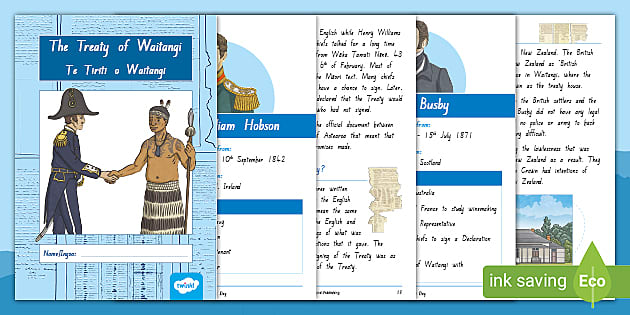 The Treaty of Waitangi
Te Tiriti o Waitangi
Name/Ingoa:
twinkl
iam Hobson
from:
10th September 1842
Ireland
or
tenant
or
Day
English while Henry Williams
iefs talked for a long time
from Waka Tamati Nene. 43
6th of February. Most of
the Māori text. Many chiefs
have a chance to sign. Later,
declared that the Treaty would
who had not signed.
the official document between
of Aotearoa that meant that
promises made.
y?
were written
the English
mean the same
the English and
s of what was
ctions that it gave. The
igning of the Treaty was as
of the Treaty.
Publishing
Busby
from:
- 15th July 1871
Scotland
ustralia
France to study winemaking
Representative
chiefs to sign a Declaration
of Waitangi with
Day
New Zealand. The British
as 'British
in Waitangi, where the
wn as the treaty house.
the British settlers and the
Busby did not have any legal
no police or army to back
difficult.
the lawlessness that was
ew Zealand as a result. They
Crown had intentions of
Zealand.
ink saving
Eco